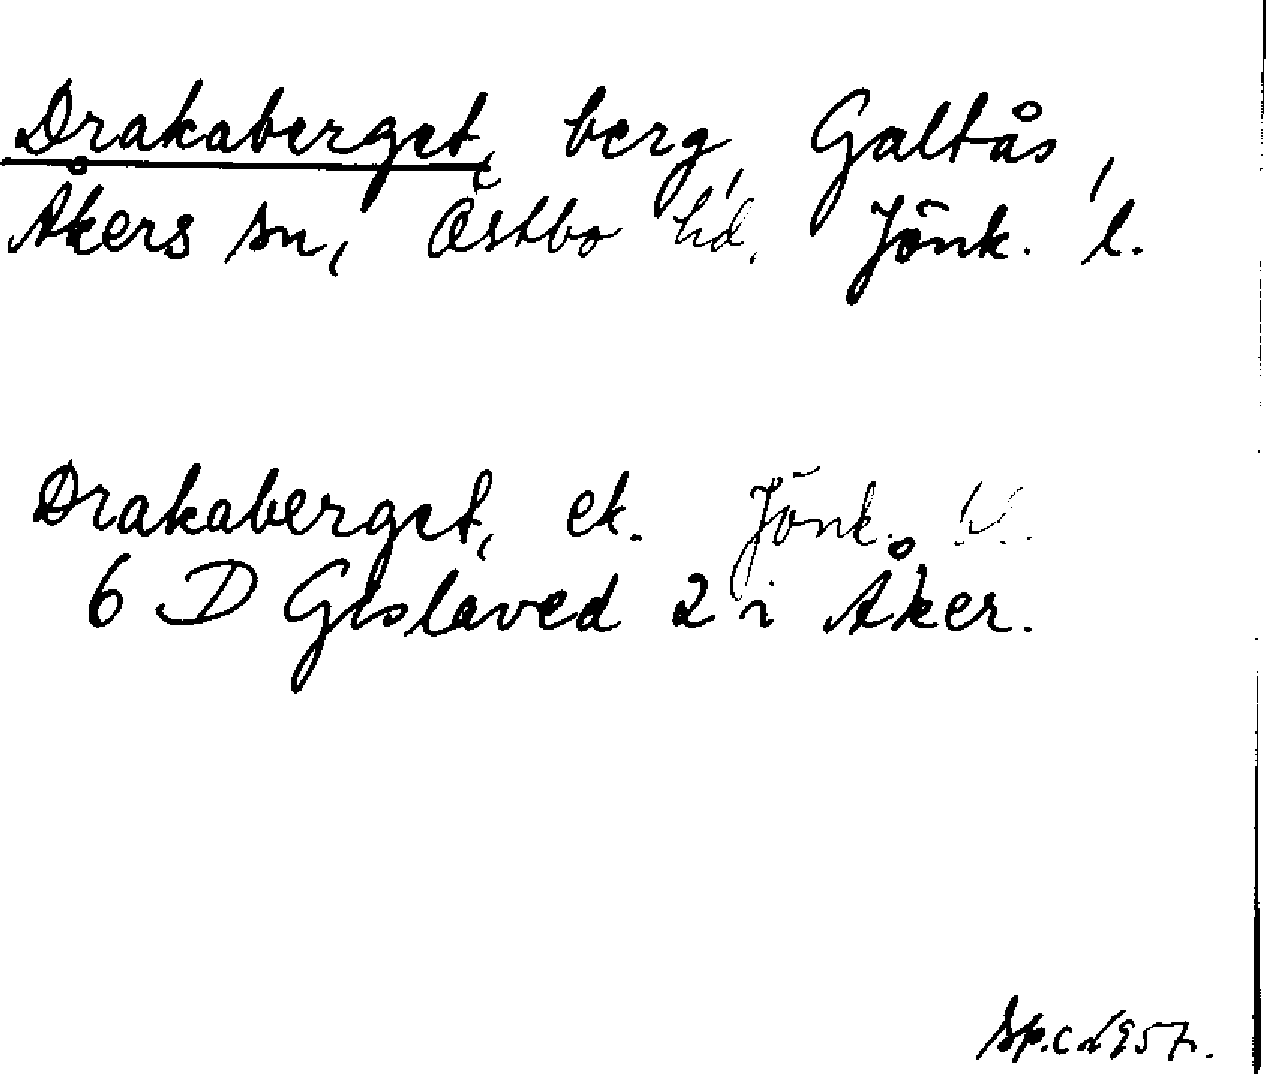 Drakaberget, berg, Galtås,
Åkers sn, Östbo hd. Jönk. l.
Drakaberget, ek. Jönk. l.
6 D Gislaved 2 i Åker.
Sp.c 1957.